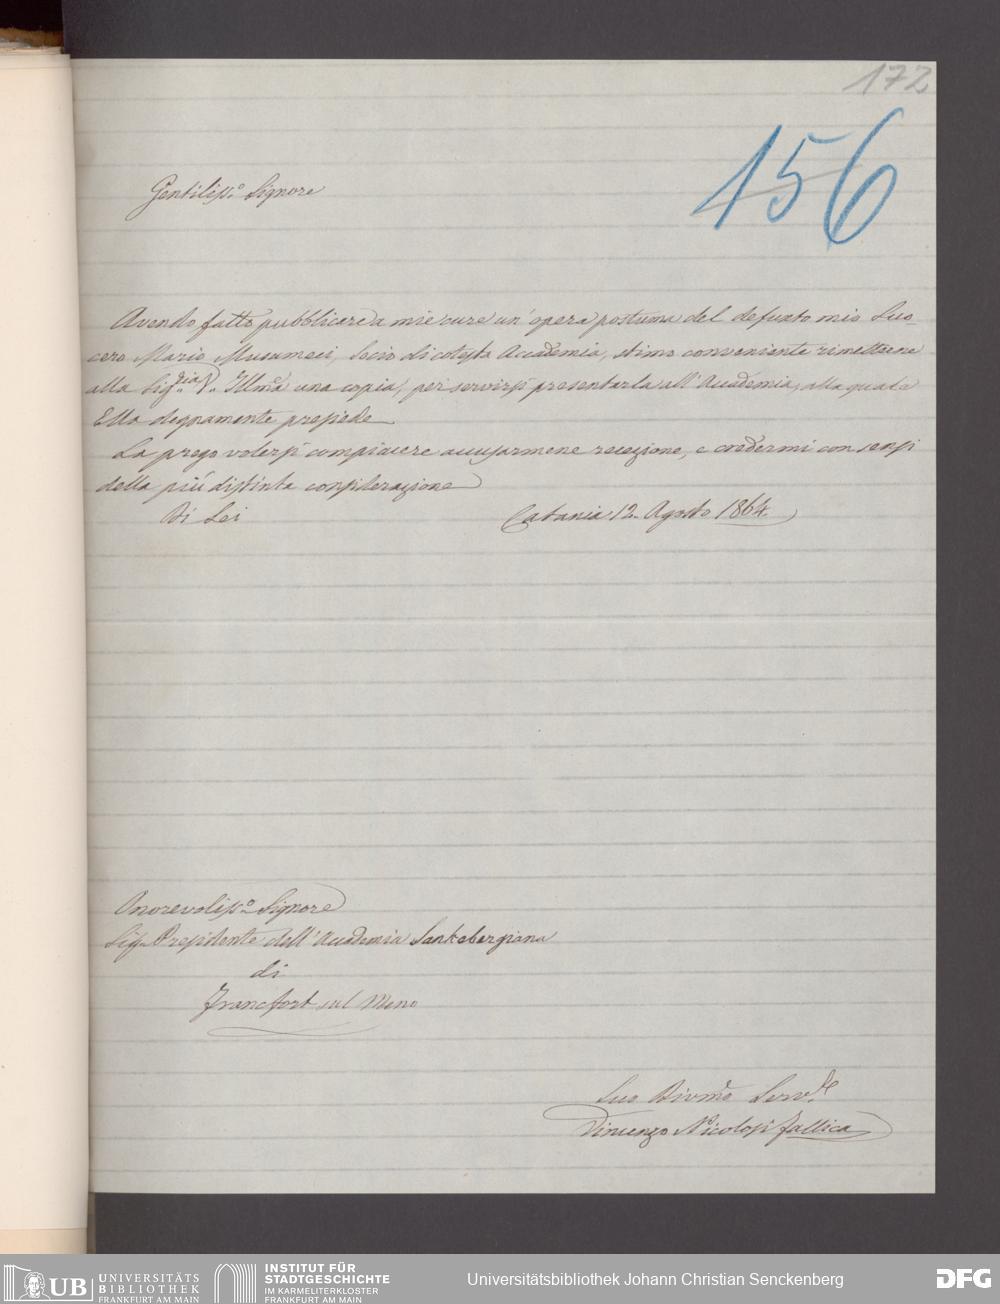 172
156
Gentiliss.o Signore
Avendo fatto pubblicare a mie cure un' opera postuma del defunto mio Suo-
cero Mario Musumeci, Socio di cotesta Accademia, stimo conveniente rimetterne
alla Sig.ria V. Illma una copia, per servirsi presentarla all' Accademia, alla quale
Ella degnamente presiede
La prego volersi compiacere accusarmene recezione, e credermi con sensi
della più distinta considerazione
Di Lei
Catania 12. Agosto 1864.
Onorevoliss.o Signore
Sig. Presidente dell' Accademia Senkebergiana
di
Francfort sul Meno
Suo Divmo Serv.e
Vincenzo Nicolosi Fallica
UB UNIVERSITÄTS
BIBLIOTHEK
FRANKFURT AM MAIN
INSTITUT FÜR
STADTGESCHICHTE
IM KARMELITERKLOSTER
FRANKFURT AM MAIN
Universitätsbibliothek Johann Christian Senckenberg
DFG